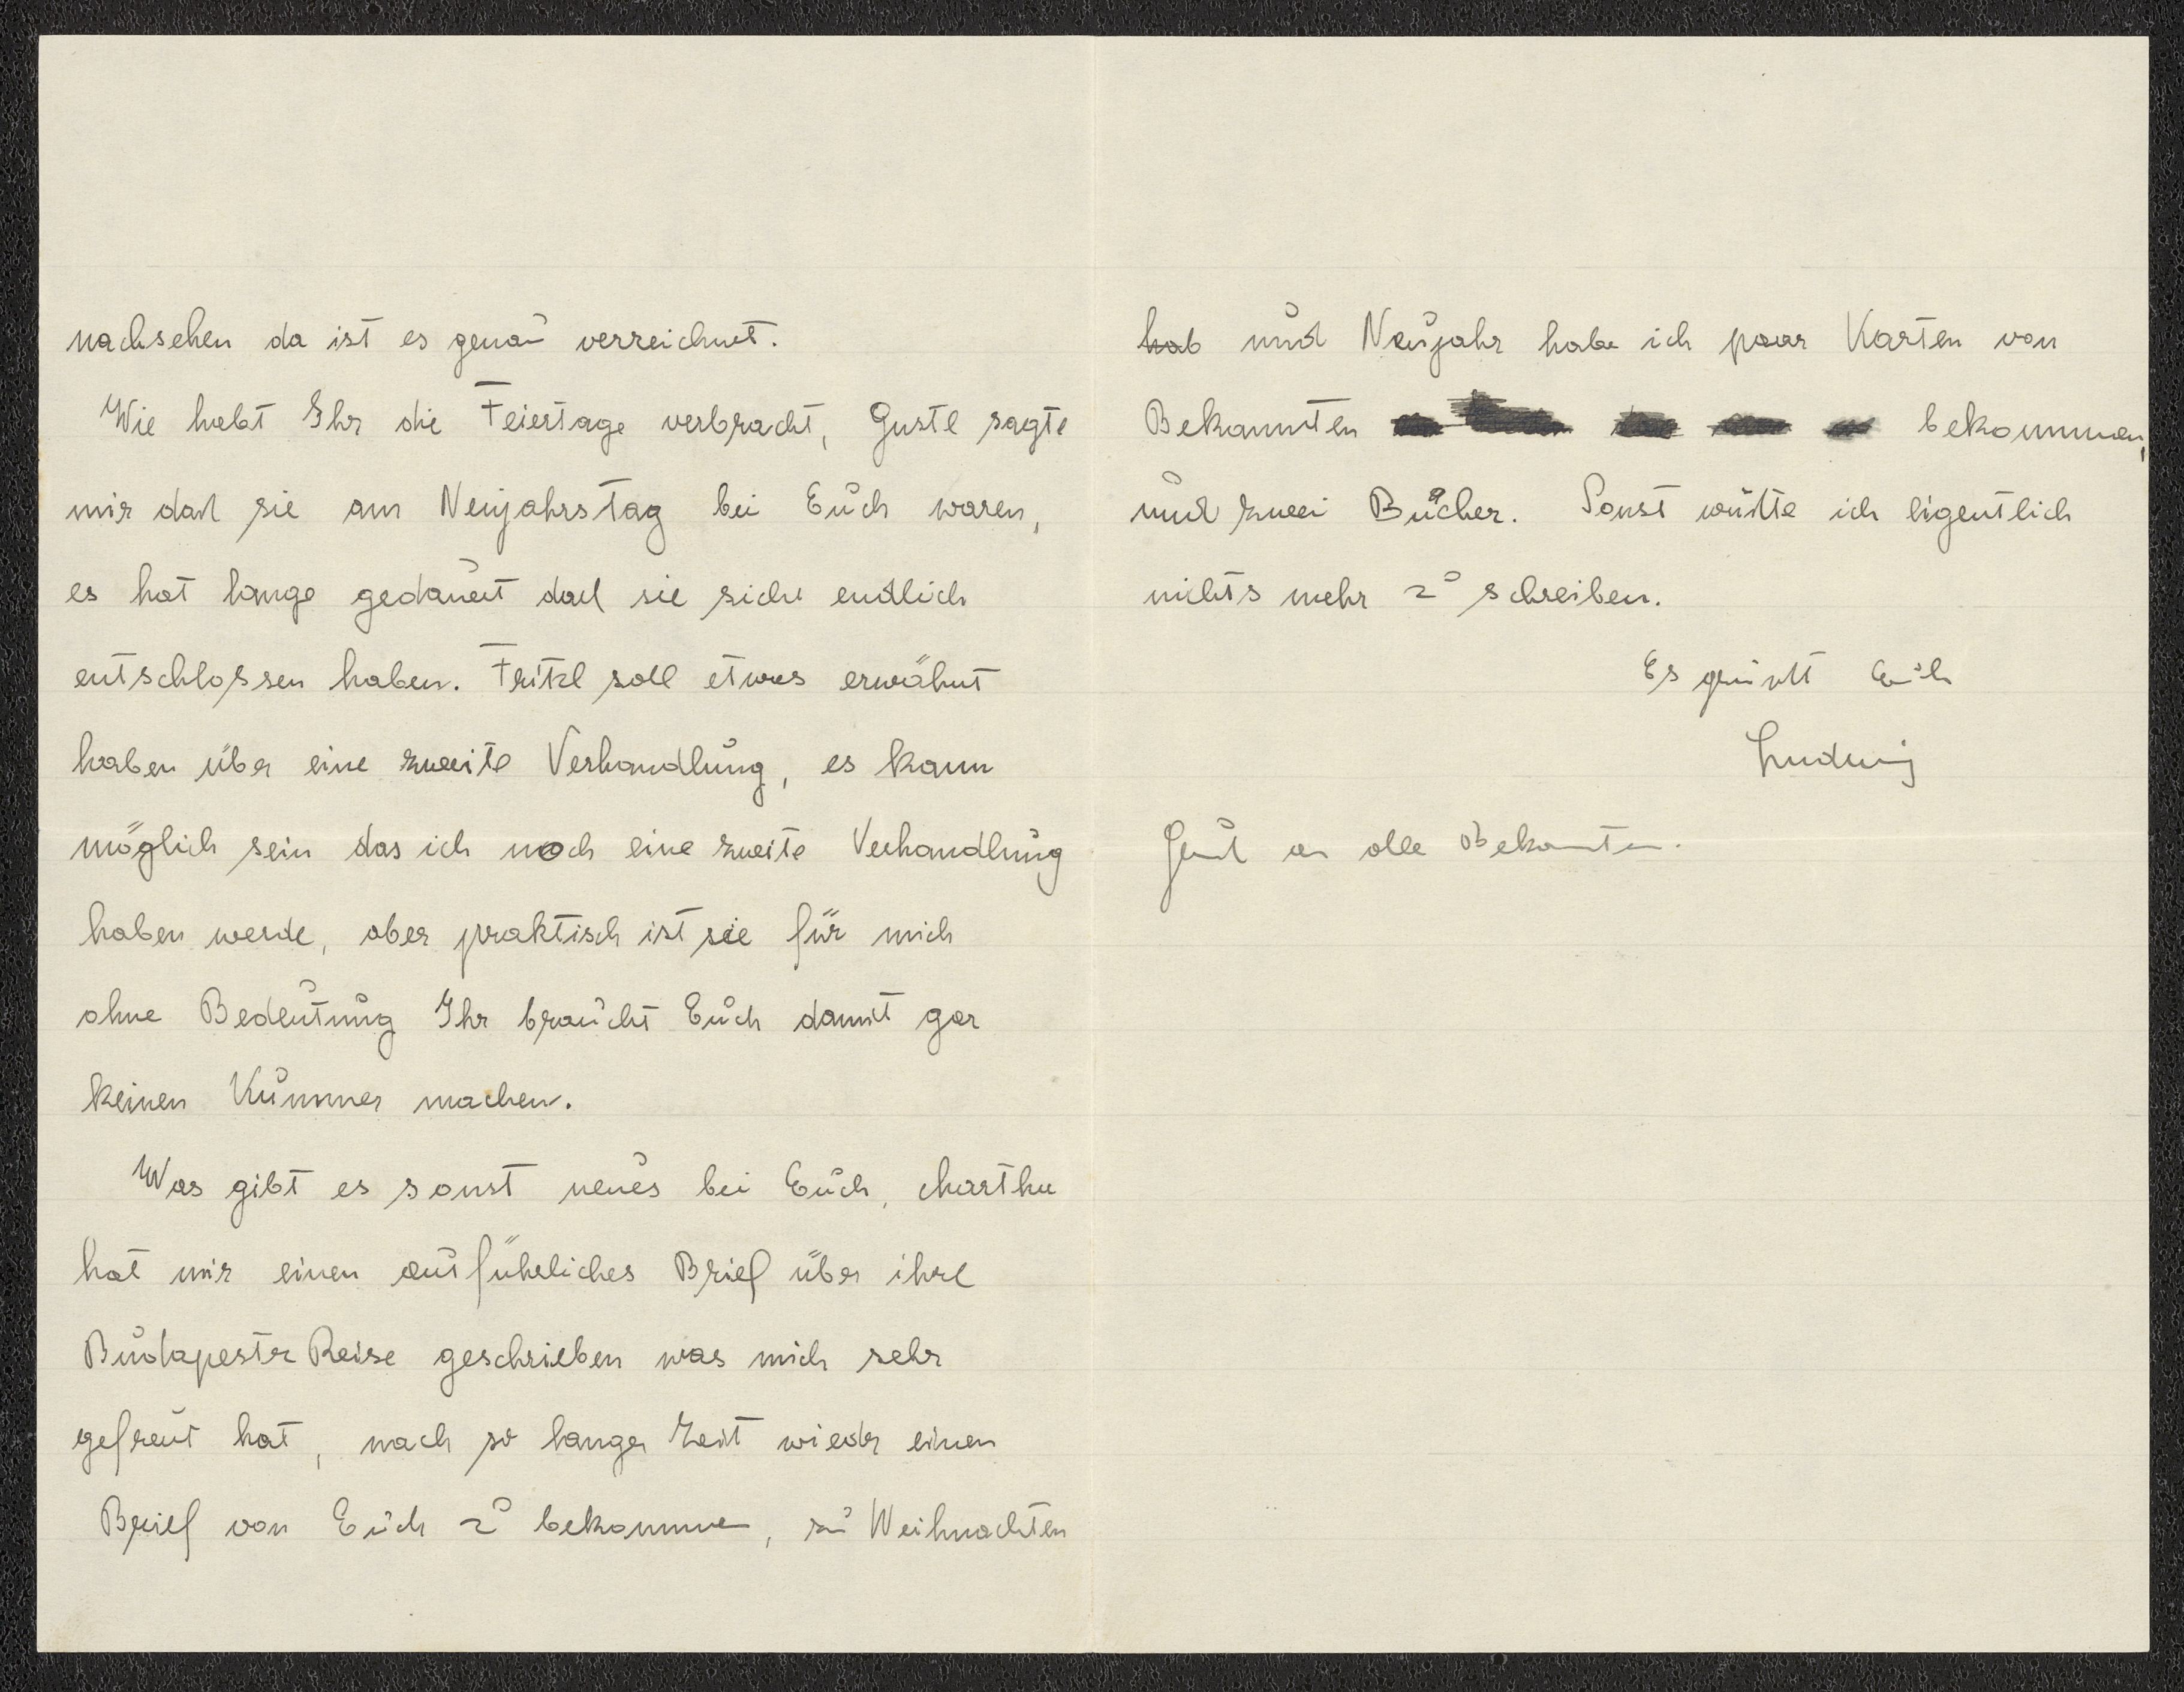 nachsehen da ist es genau verzeichnet.
Wie habt Ihr die Feiertage verbracht, Gustl sagte
mir daß sie am Neujahrstag bei Euch waren,
es hat lange gedauert daß sie sich endlich
entschlossen haben. Fritzl soll etwas erwähnt
haben über eine zweite Verhandlung, es kann
möglich sein das ich noch eine zweite Verhandlung
haben werde, aber praktisch ist sie für mich
ohne Bedeutung Ihr braucht Euch damit gar
keinen Kummer machen.
Was gibt es sonst neues bei Euch, Martha
hat mir einen ausführliches Brief über ihre
Budapester Reise geschrieben was mich sehr
gefreut hat, nach so langer Zeit wieder einen
Brief von Euch zu bekommen, zu Weihnachten
hab und Neujahr habe ich paar Karten von
Bekannten bekommen,
und zwei Bücher. Sonst wüßte ich eigentlich
nichts mehr zu schreiben.
Es grüßt Euch
Ludwig
Gruß an alle Bekannten.